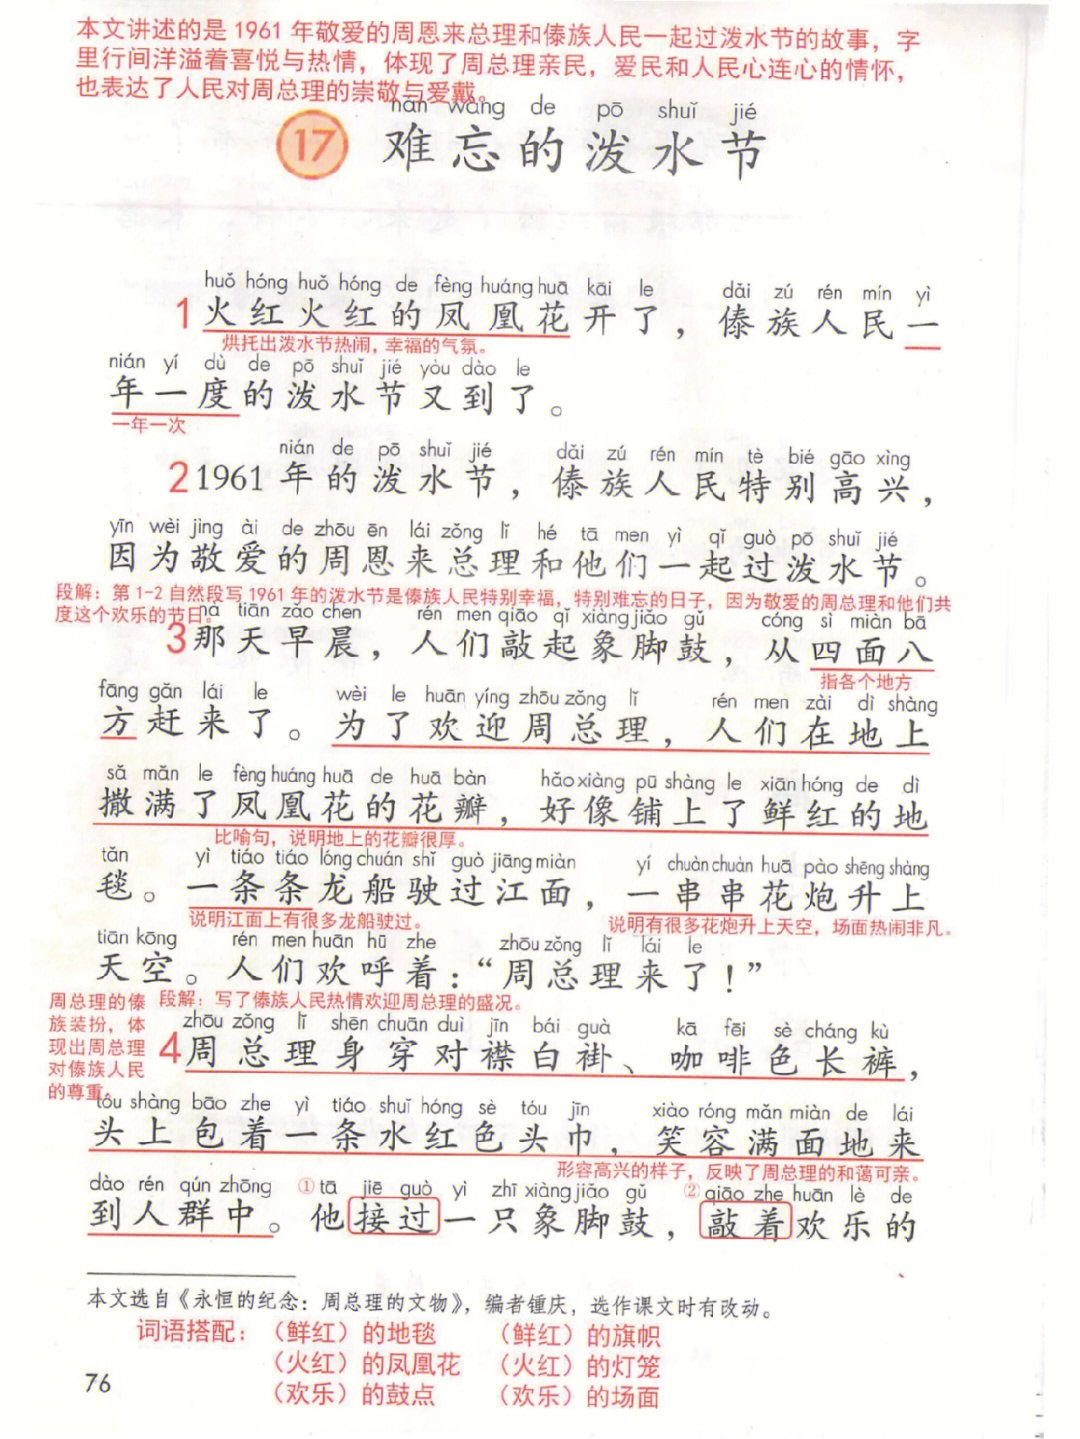 本文讲述的是 1961 年敬爱的周恩来总理和傣族人民一起过泼水节的故事，字
里行间洋溢着喜悦与热情，体现了周总理亲民，爱民和人民心连心的情怀，
也表达了人民对周总理的崇敬与爱戴。
nán wàng de pō shuǐ jié
17 难忘的泼水节
huǒ hóng huǒ hóng de fèng huáng huā kāi le dǎi zú rén mín yì
1 火红火红的凤凰花开了，傣族人民一
烘托出泼水节热闹，幸福的气氛。
nián yí dù de pō shuǐ jié yòu dào le
年一度的泼水节又到了。
一年一次
nián de pō shuǐ jié dǎi zú rén mín tè bié gāo xìng
2 1961 年的泼水节，傣族人民特别高兴，
yīn wèi jìng ài de zhōu ēn lái zǒng lǐ hé tā men yì qǐ guò pō shuǐ jié
因为敬爱的周恩来总理和他们一起过泼水节。
段解：第 1-2 自然段写 1961 年的泼水节是傣族人民特别幸福，特别难忘的日子，因为敬爱的周总理和他们共
度这个欢乐的节日。
nà tiān zǎo chen rén men qiāo qǐ xiàng jiǎo gǔ cóng sì miàn bā
3 那天早晨，人们敲起象脚鼓，从四面八
指各个地方
fāng gǎn lái le wèi le huān yíng zhōu zǒng lǐ rén men zài dì shàng
方赶来了。为了欢迎周总理，人们在地上
sǎ mǎn le fèng huáng huā de huā bàn hǎo xiàng pū shàng le xiān hóng de dì
撒满了凤凰花的花瓣，好像铺上了鲜红的地
比喻句，说明地上的花瓣很厚。
tǎn yì tiáo tiáo lóng chuán shǐ guò jiāng miàn yí chuàn chuàn huā pào shēng shàng
毯。一条条龙船驶过江面，一串串花炮升上
说明江面上有很多龙船驶过。 说明有很多花炮升上天空，场面热闹非凡。
tiān kōng rén men huān hū zhe zhōu zǒng lǐ lái le
天空。人们欢呼着：“周总理来了！”
段解：写了傣族人民热情欢迎周总理的盛况。
周总理的傣
族装扮，体
现出周总理
对傣族人民
的尊重。
zhōu zǒng lǐ shēn chuān duì jīn bái guà kā fēi sè cháng kù
4 周总理身穿对襟白褂、咖啡色长裤，
tóu shàng bāo zhe yì tiáo shuǐ hóng sè tóu jīn xiào róng mǎn miàn de lái
头上包着一条水红色头巾，笑容满面地来
形容高兴的样子，反映了周总理的和蔼可亲。
dào rén qún zhōng ①tā jiē guò yì zhī xiàng jiǎo gǔ ②qiāo zhe huān lè de
到人群中。他接过一只象脚鼓，敲着欢乐的
本文选自《永恒的纪念：周总理的文物》，编者锺庆，选作课文时有改动。
词语搭配：（鲜红）的地毯 （鲜红）的旗帜
（火红）的凤凰花 （火红）的灯笼
（欢乐）的鼓点 （欢乐）的场面
76